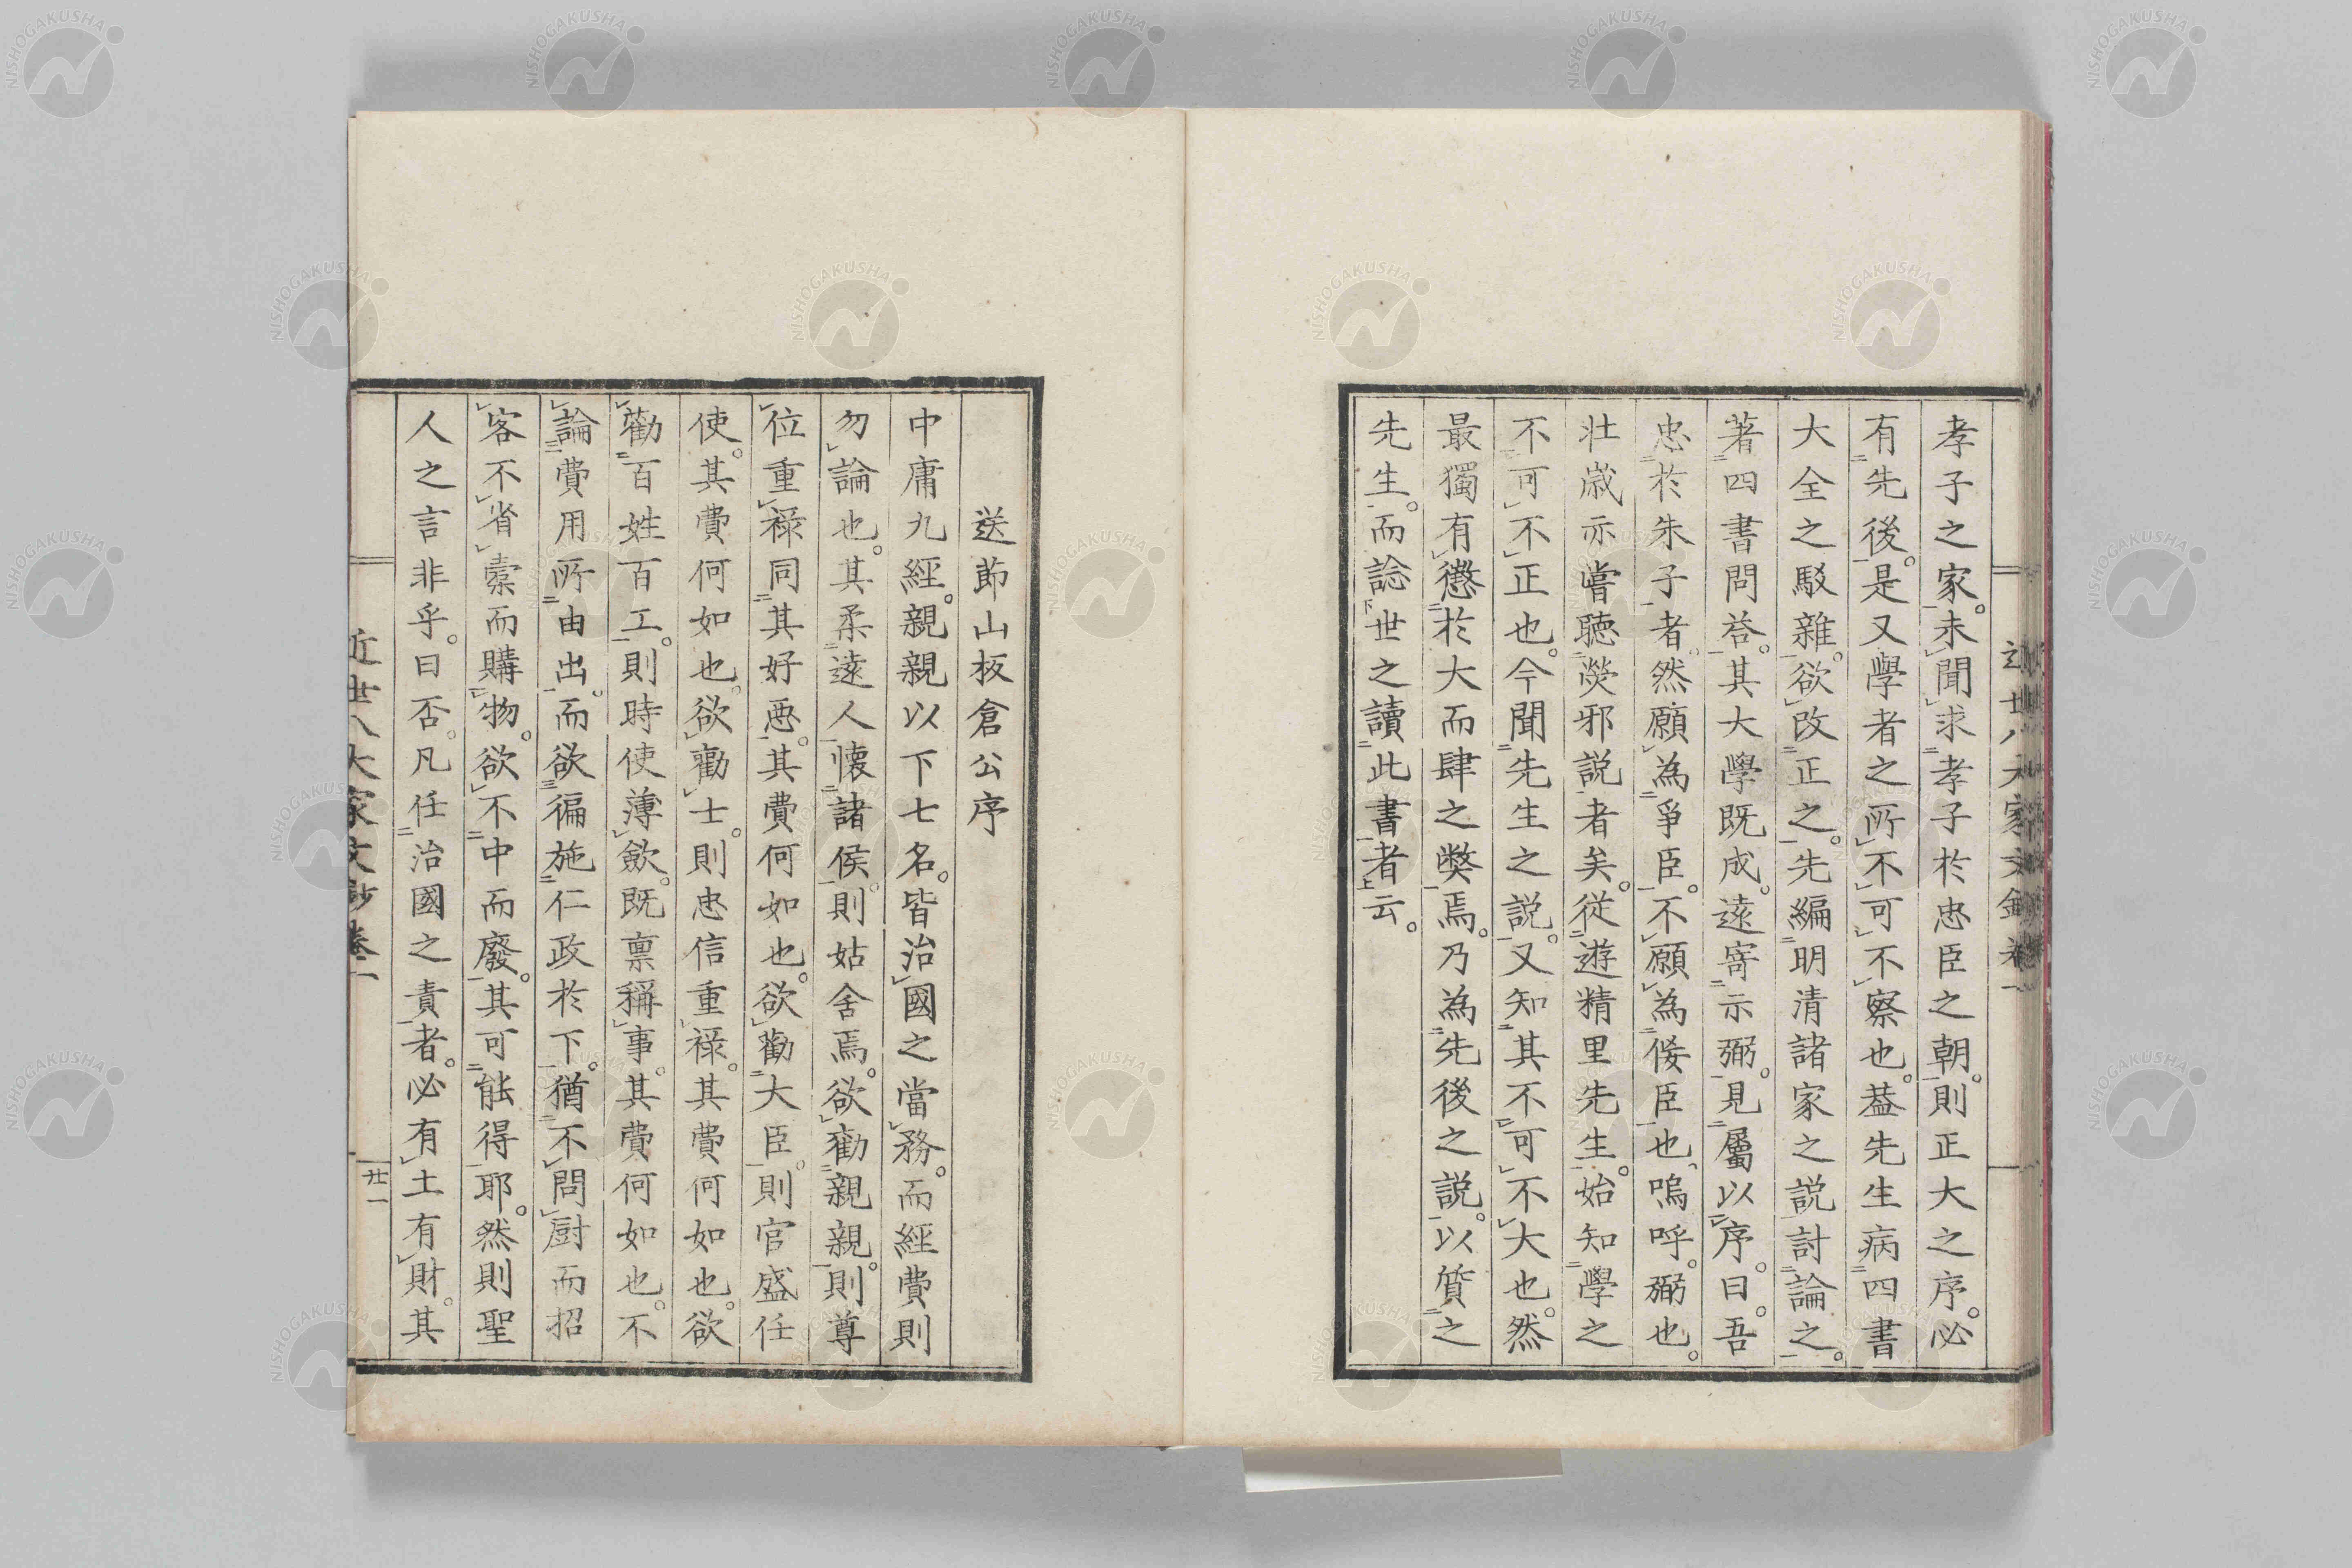 孝子之家。未聞求孝子於忠臣之朝。則正大之序。必
有先後。是又學者之所不可不察也。蓋先生病四書
大全之駁雜。欲改正之。先編明清諸家之説討論之。
著四書問答。其大學既成。遠寄示弼。見屬以序。曰。吾
忠於朱子者。然願為爭臣。不願為佞臣也。嗚呼。弼也。
壯嵗亦嘗聽熒邪説者矣。從遊精里先生。始知學之
不可不正也。今聞先生之説。又知其不可不大也。然
最獨有懲於大而肆之弊焉。乃為先後之説。以質之
先生。而諗世之讀此書者云。
送節山板倉公序
中庸九經。親親以下七名。皆治國之當務。而經費則
勿論也。其柔遠人懷諸侯。則姑舍焉。欲勸親親。則尊
位重祿同其好惡。其費何如也。欲勸大臣。則官盛任
使。其費何如也。欲勸士。則忠信重祿。其費何如也。欲
勸百姓百工。則時使薄斂。既稟稱事。其費何如也。不
論費用所由出。而欲徧施仁政於下。猶不問厨而招
客不省橐而購物。欲不中而廢。其可能得耶。然則聖
人之言非乎。曰否。凡任治國之責者。必有土有財。其
近世八大家文鈔卷一
廿一
近世八大家文鈔卷一
NISHOGAKUSHA